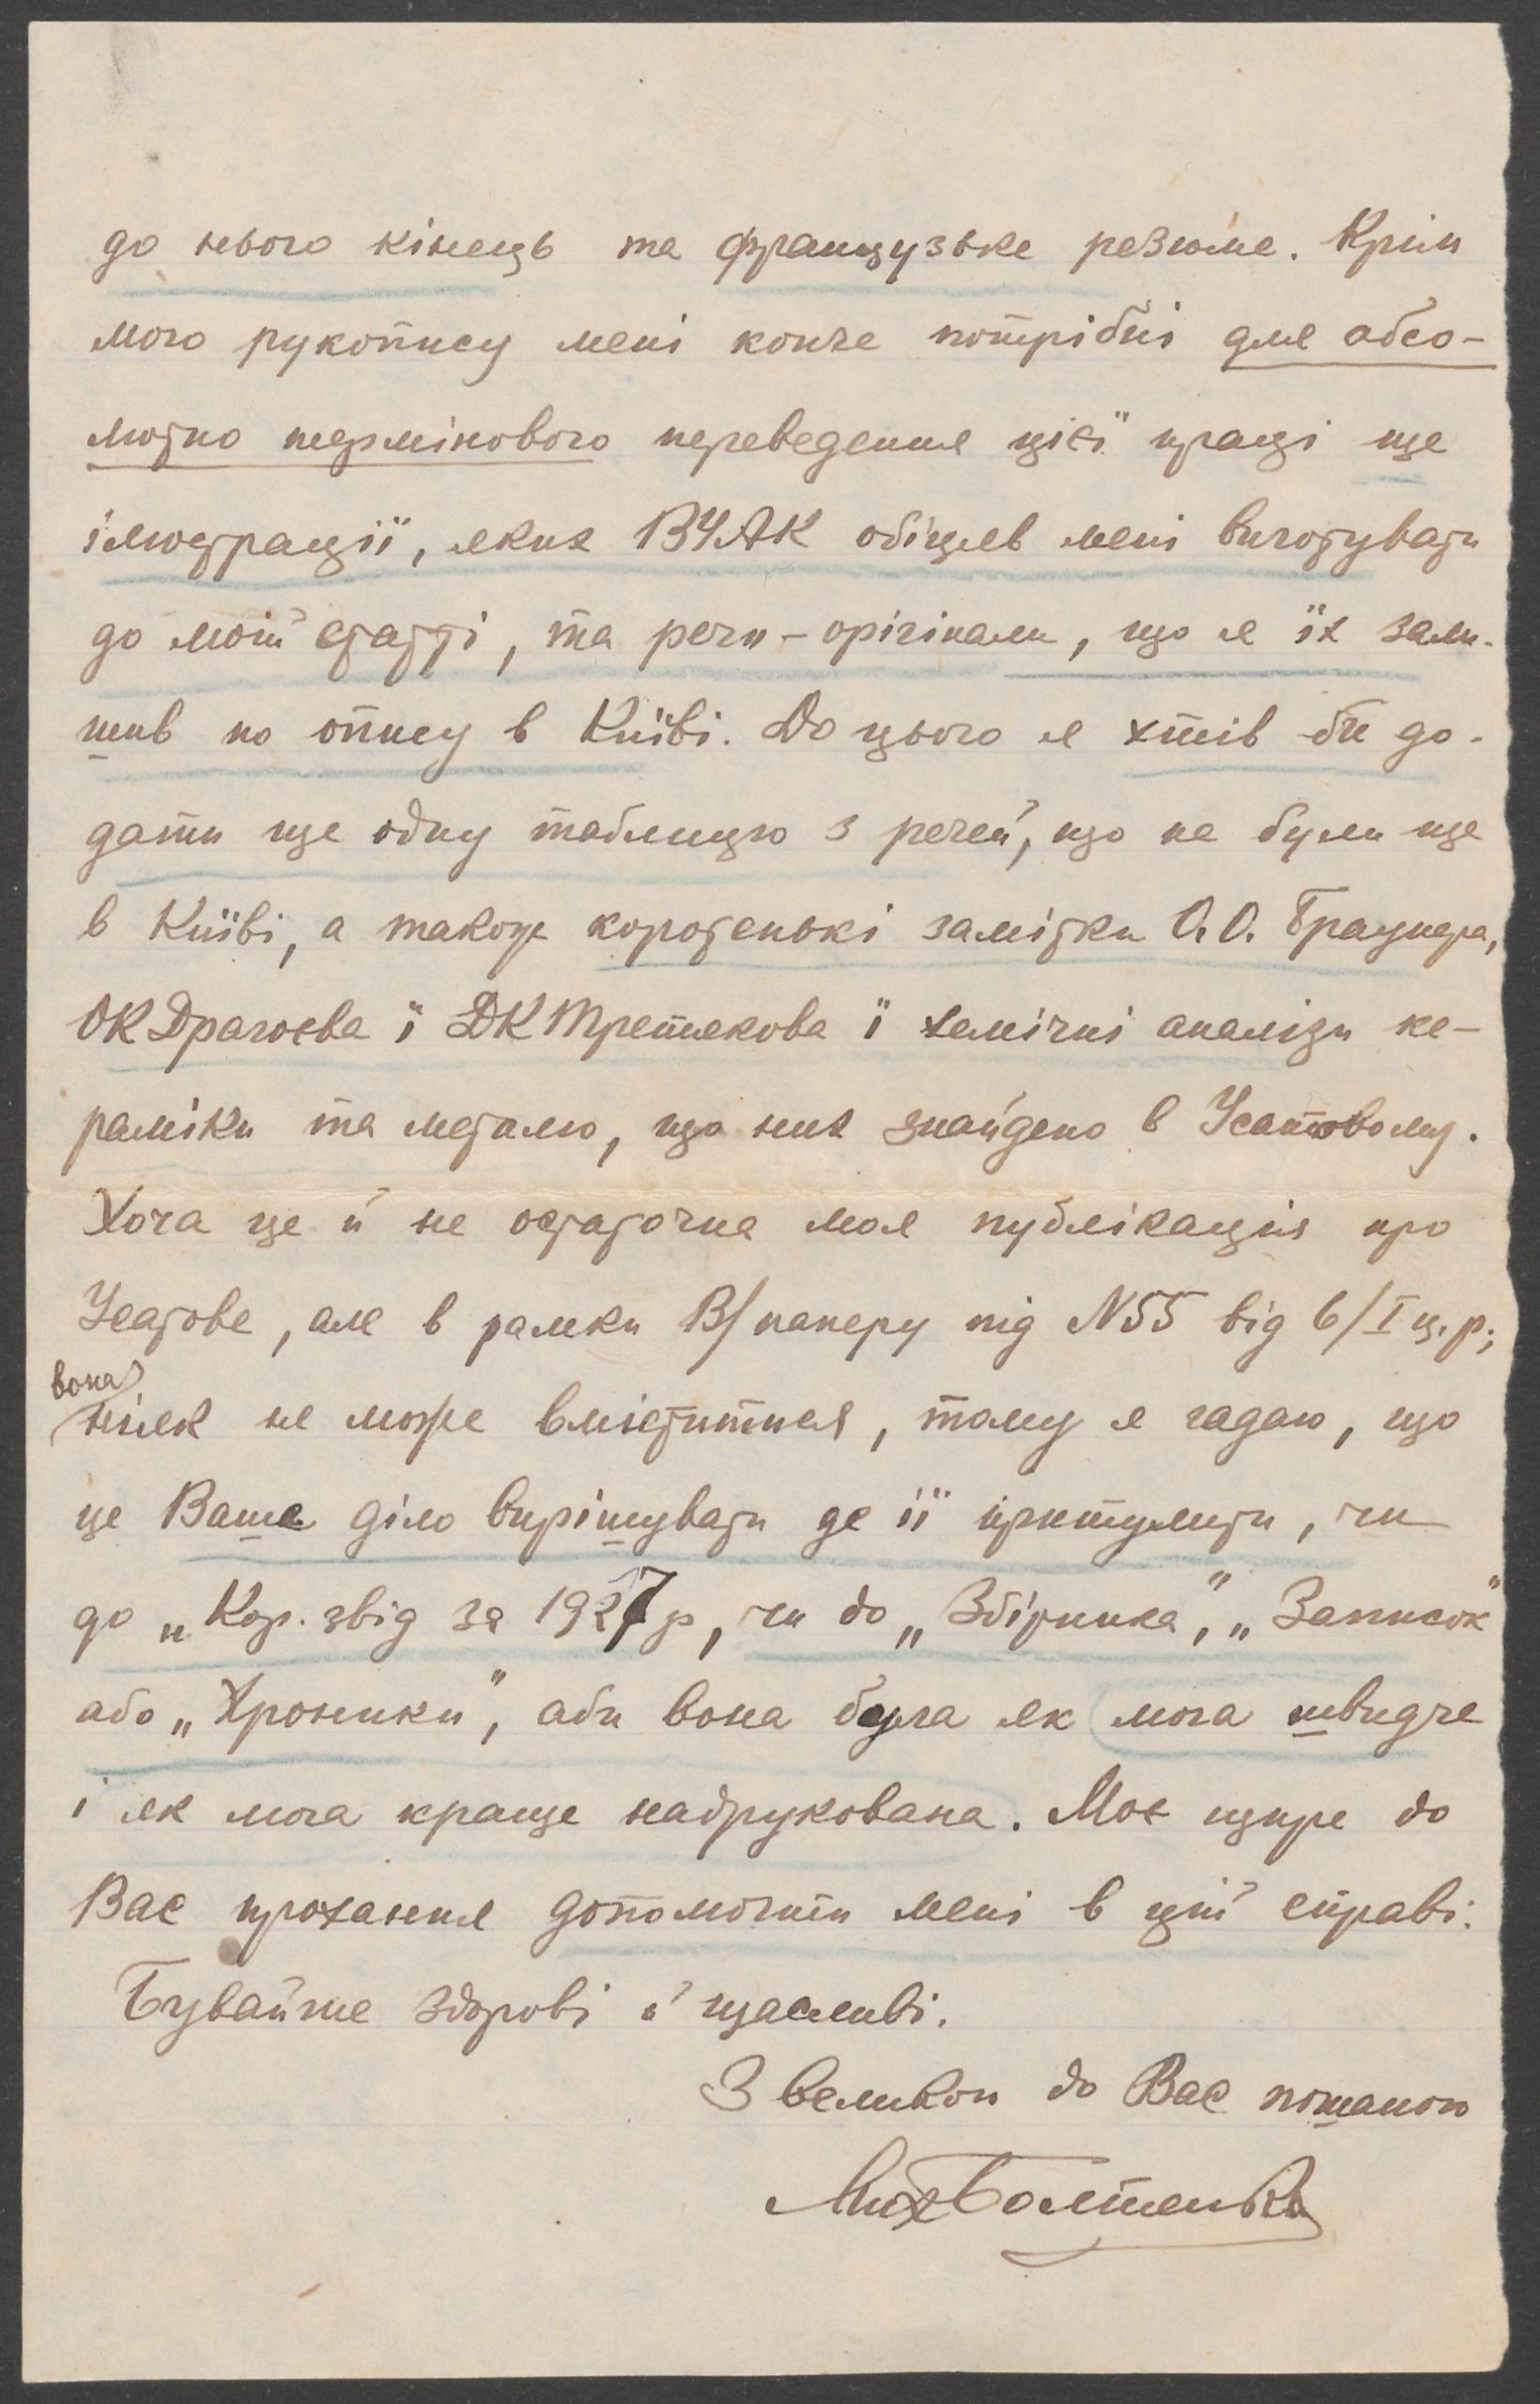 до нього кінець та французське резюме. Крім
мого рукопису мені конче потрібні для абсо-
лютно термінового переведення цієї праці ще
ілюстрації, яких ВУАК обіцяв мені виготувати
до моїй статті, та речи-орігінали, що я їх зали-
шив по опису в Київі. До цього я хтів би до-
дати ще одну таблицю з речей, що не були ще
в Київі, а також коротенькі замітки О.О. Браунера,
ОК Драгоєва ї ДК Третьякова ї хемічні аналізи ке-
раміки та металю, що них знайдено в Усатовому.
Хоча це й не остаточна моя публікація про
Усатове, але в рамки В/паперу під N55 від 6/I ц.р;
вона
ніяк не може вміститися, тому я гадаю, що
це Ваше діло вирішувати де її притулити, чи
до „Кор. звід за 1927 р, чи до „Збірника", „Записок"
або „Хроники", аби вона була як мога швидче
і як мога краще надрукована. Моє щире до
Вас прохання допомогти мені в цій справі.
Бувайте здорові й щасливі.
З великою до Вас пошаною
Мих Болтенко